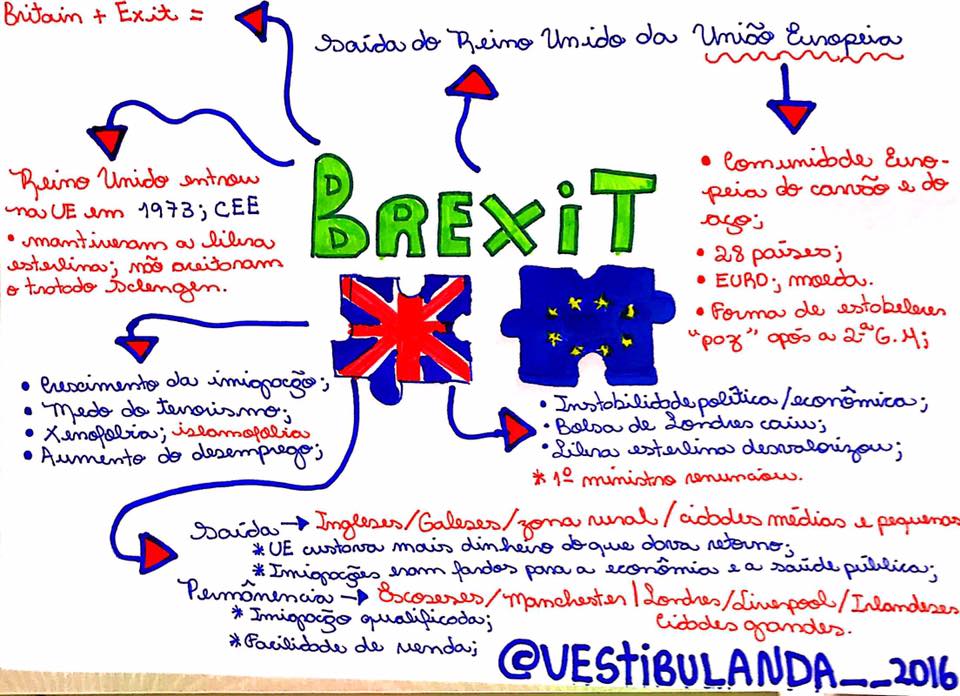 Britain + Exit =
Saída do Reino Unido da União Europeia
BREXiT
Reino Unido entrou
na UE em 1973; CEE
• mantiveram a libra
esterlina; não aceitaram
o tratado Schengen.
• Comunidade Euro-
peia do carvão e do
aço;
• 28 países;
• EURO; moeda.
• Forma de estabelecer
"paz" após a 2ª G.M;
• Crescimento da imigração;
• Medo do terrorismo;
• Xenofobia; islamofobia
• Aumento do desemprego;
• Instabilidade política/econômica;
• Bolsa de Londres caiu;
• Libra esterlina desvalorizou;
* 1º ministro renunciou.
Saída → Ingleses/Galeses/zona rural/cidades médias e pequenas
* UE custava mais dinheiro do que dava retorno;
* Imigrações eram fardos para a econômia e a saúde pública;
Permânencia → Escoseses/Manchester/Londres/Liverpool/Irlandeses
Cidades grandes.
* Imigração qualificada;
* Facilidade de venda;
@VESTiBULANDA__2016